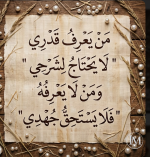 مَنْ يَعْرِفُ قَدْرِي
"لَا يَحْتَاجُ لِشَرْحِي"
وَمَنْ لَا يَعْرِفُهُ
"فَلَا يَسْتَحِقُّ جُهْدِي"